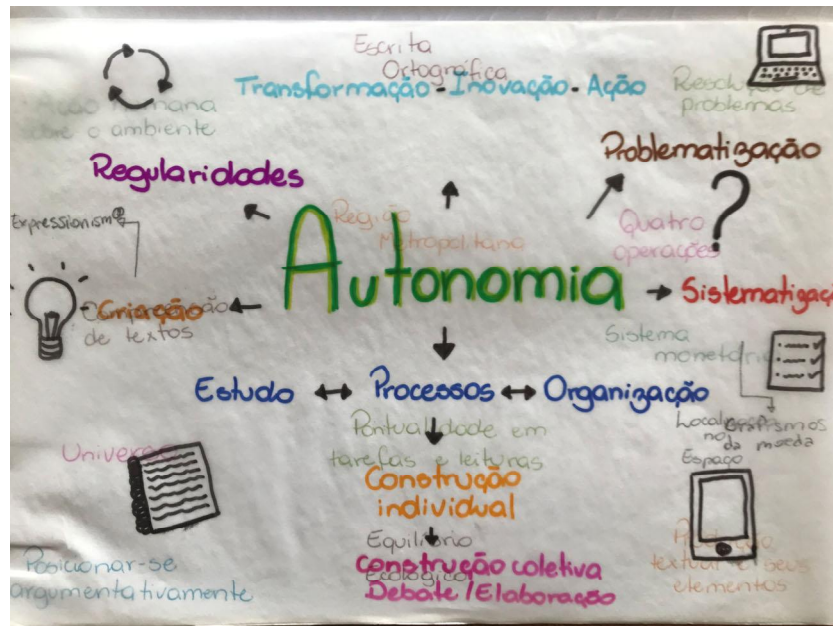 Escrita
Ortográfica
Transformação - Inovação - Ação
Resolução de
problemas
Ação humana
sobre o ambiente
Problematização
Regularidades
Expressionismo
Região
Metropolitana
Quatro
operações
Autonomia
Sistematizaç
Criação
de textos
Sistema
monetário
Estudo ↔ Processos ↔ Organização
Pontualidade em
tarefas e leituras
Localização
no
Espaço
da moeda
Universo
Construção
individual
Equilíbrio
Ecológico
Construção coletiva
Debate/Elaboração
Posicionar-se
argumentativamente
Produção
textual e seus
elementos